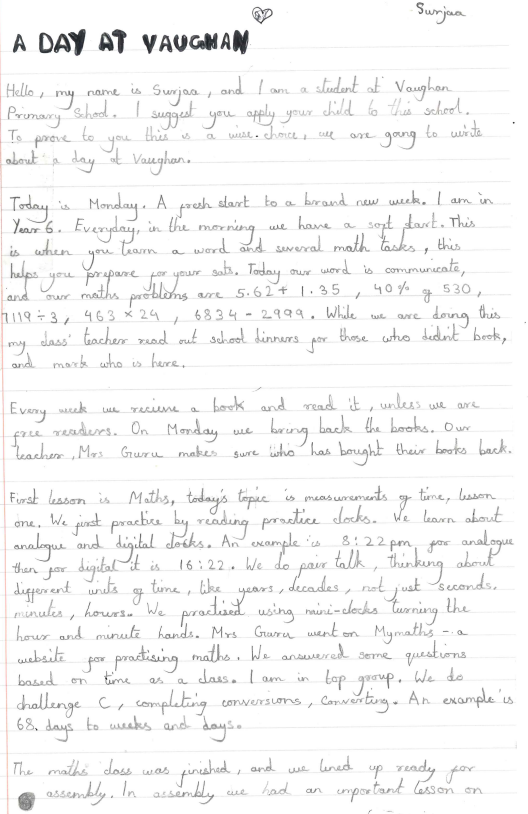 Surjaa
A DAY AT VAUGHAN
Hello, my name is Surjaa, and I am a student at Vaughan
Primary School. I suggest you apply your child to this school.
To prove to you this is a wise choice, we are going to write
about a day at Vaughan.
Today is Monday. A fresh start to a brand new week. I am in
Year 6. Everyday, in the morning we have a soft start. This
is when you learn a word and several math tasks, this
helps you prepare for your sats. Today our word is communicate,
and our maths problems are 5.62 + 1.35, 40% of 530,
7119÷3, 463 × 24, 6834 - 2999. While we are doing this
my class' teacher read out school dinners for those who didn't book,
and mark who is here.
Every week we recieve a book and read it, unless we are
free readers. On Monday we bring back the books. Our
teacher, Mrs Guru makes sure who has bought their books back.
First lesson is Maths, today's topic is measurements of time, lesson
one. We first practice by reading practice clocks. We learn about
analogue and digital clocks. An example is 8:22pm for analogue
then for digital it is 16:22. We do pair talk, thinking about
different units of time, like years, decades, not just seconds,
minutes, hours. We practised using mini-clocks turning the
hour and minute hands. Mrs Guru went on Mymaths - a
website for practising maths. We answered some questions
based on time as a class. I am in top group. We do
challenge C, completing conversions, converting. An example is
68 days to weeks and days.
The maths class was finished, and we lined up ready for
assembly. In assembly we had an important lesson on